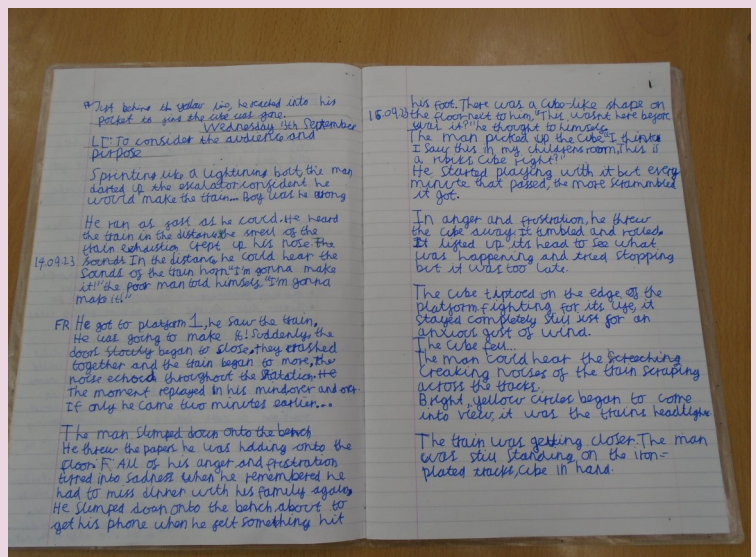 *Just behind the yellow line, he reached into his
pocket to find the cube was gone.
Wednesday 13th September
LI: To consider the audience and
purpose
Sprinting like a lightining bolt, the man
darted up the escalator confident he
would make the train... Boy was he wrong
He ran as fast as he could. He heard
the train in the distance, the smell of the
train exhaustion crept up his nose. The
14.09.23 sounds In the distance, he could hear the
sounds of the train horn "I'm gonna make
it!" the poor man told himself. "I'm gonna
make it!"
FR He got to platform 1, he saw the train,
He was going to make it! Suddenly, the
doors slowly began to close, they crashed
together and the train began to move, The
noise echoed throughout the station. He
The moment replayed in his mind over and over.
If only he came two minutes earlier...
The man slumped down onto the bench
He threw the papers he was holding onto the
floor. F All of his anger and frustration
turned into sadness when he remembered he
had to miss dinner with his family again,
He slumped down onto the bench, about to
get his phone when he felt something hit
1
his foot. There was a cube-like shape on
15.09.23 the floor next to him. "This wasn't here before
was it?" he thought to himself.
The man picked up the cube "I think
I saw this in my childrens room, This is
a rubiks cube right?"
He started playing with it but every
minute that passed, the more scrambled
it got.
In anger and frustration, he threw
the cube away. It tumbled and rolled.
It lifted up its head to see what
was happening and tried stopping
but it was too late.
The cube tiptoed on the edge of the
platform fighting for its life, it
stayed completely still just for an
anxious gust of wind.
The cube fell...
The man could hear the screeching
creaking noises of the train scraping
across the tracks.
Bright, yellow circles began to come
into view, it was the trains headlights
The train was getting closer. The man
was still standing on the iron-
plated tracks, cube in hand.